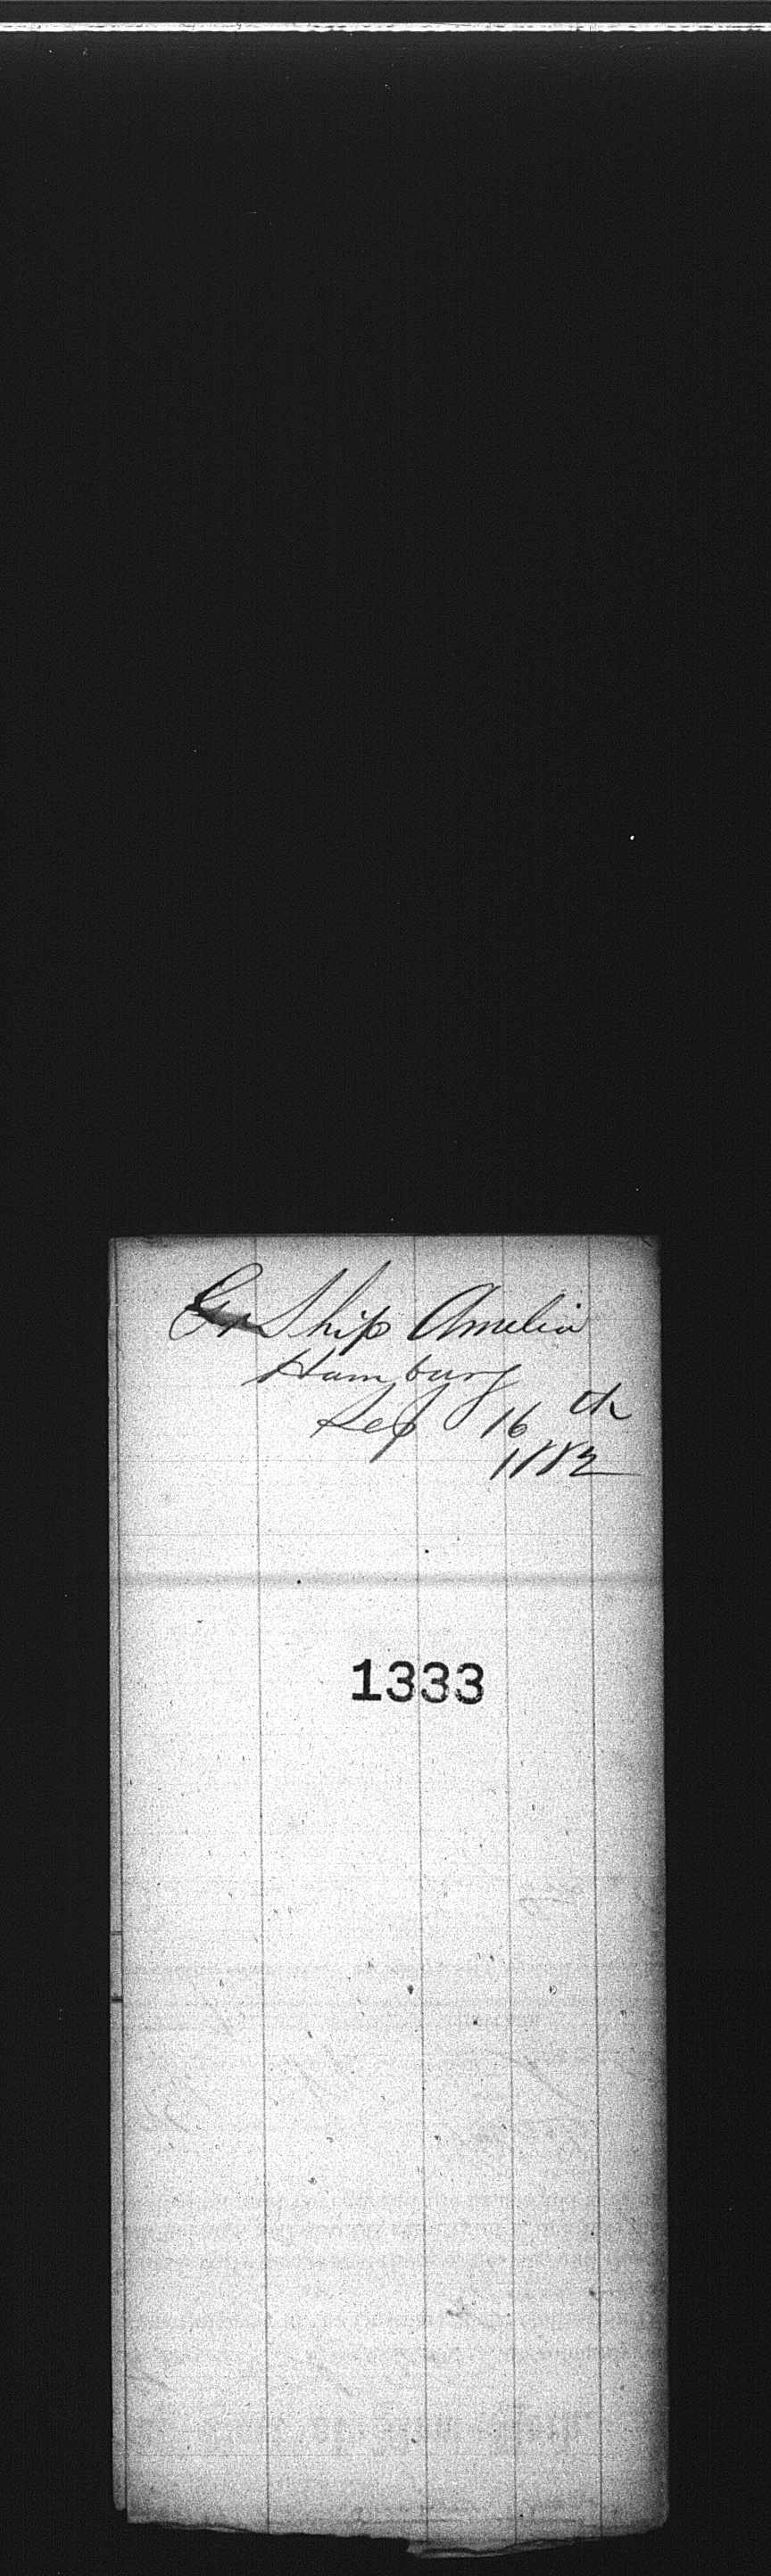 Gr Ship Amelia
Hamburg
Sep 16th
1882
1333